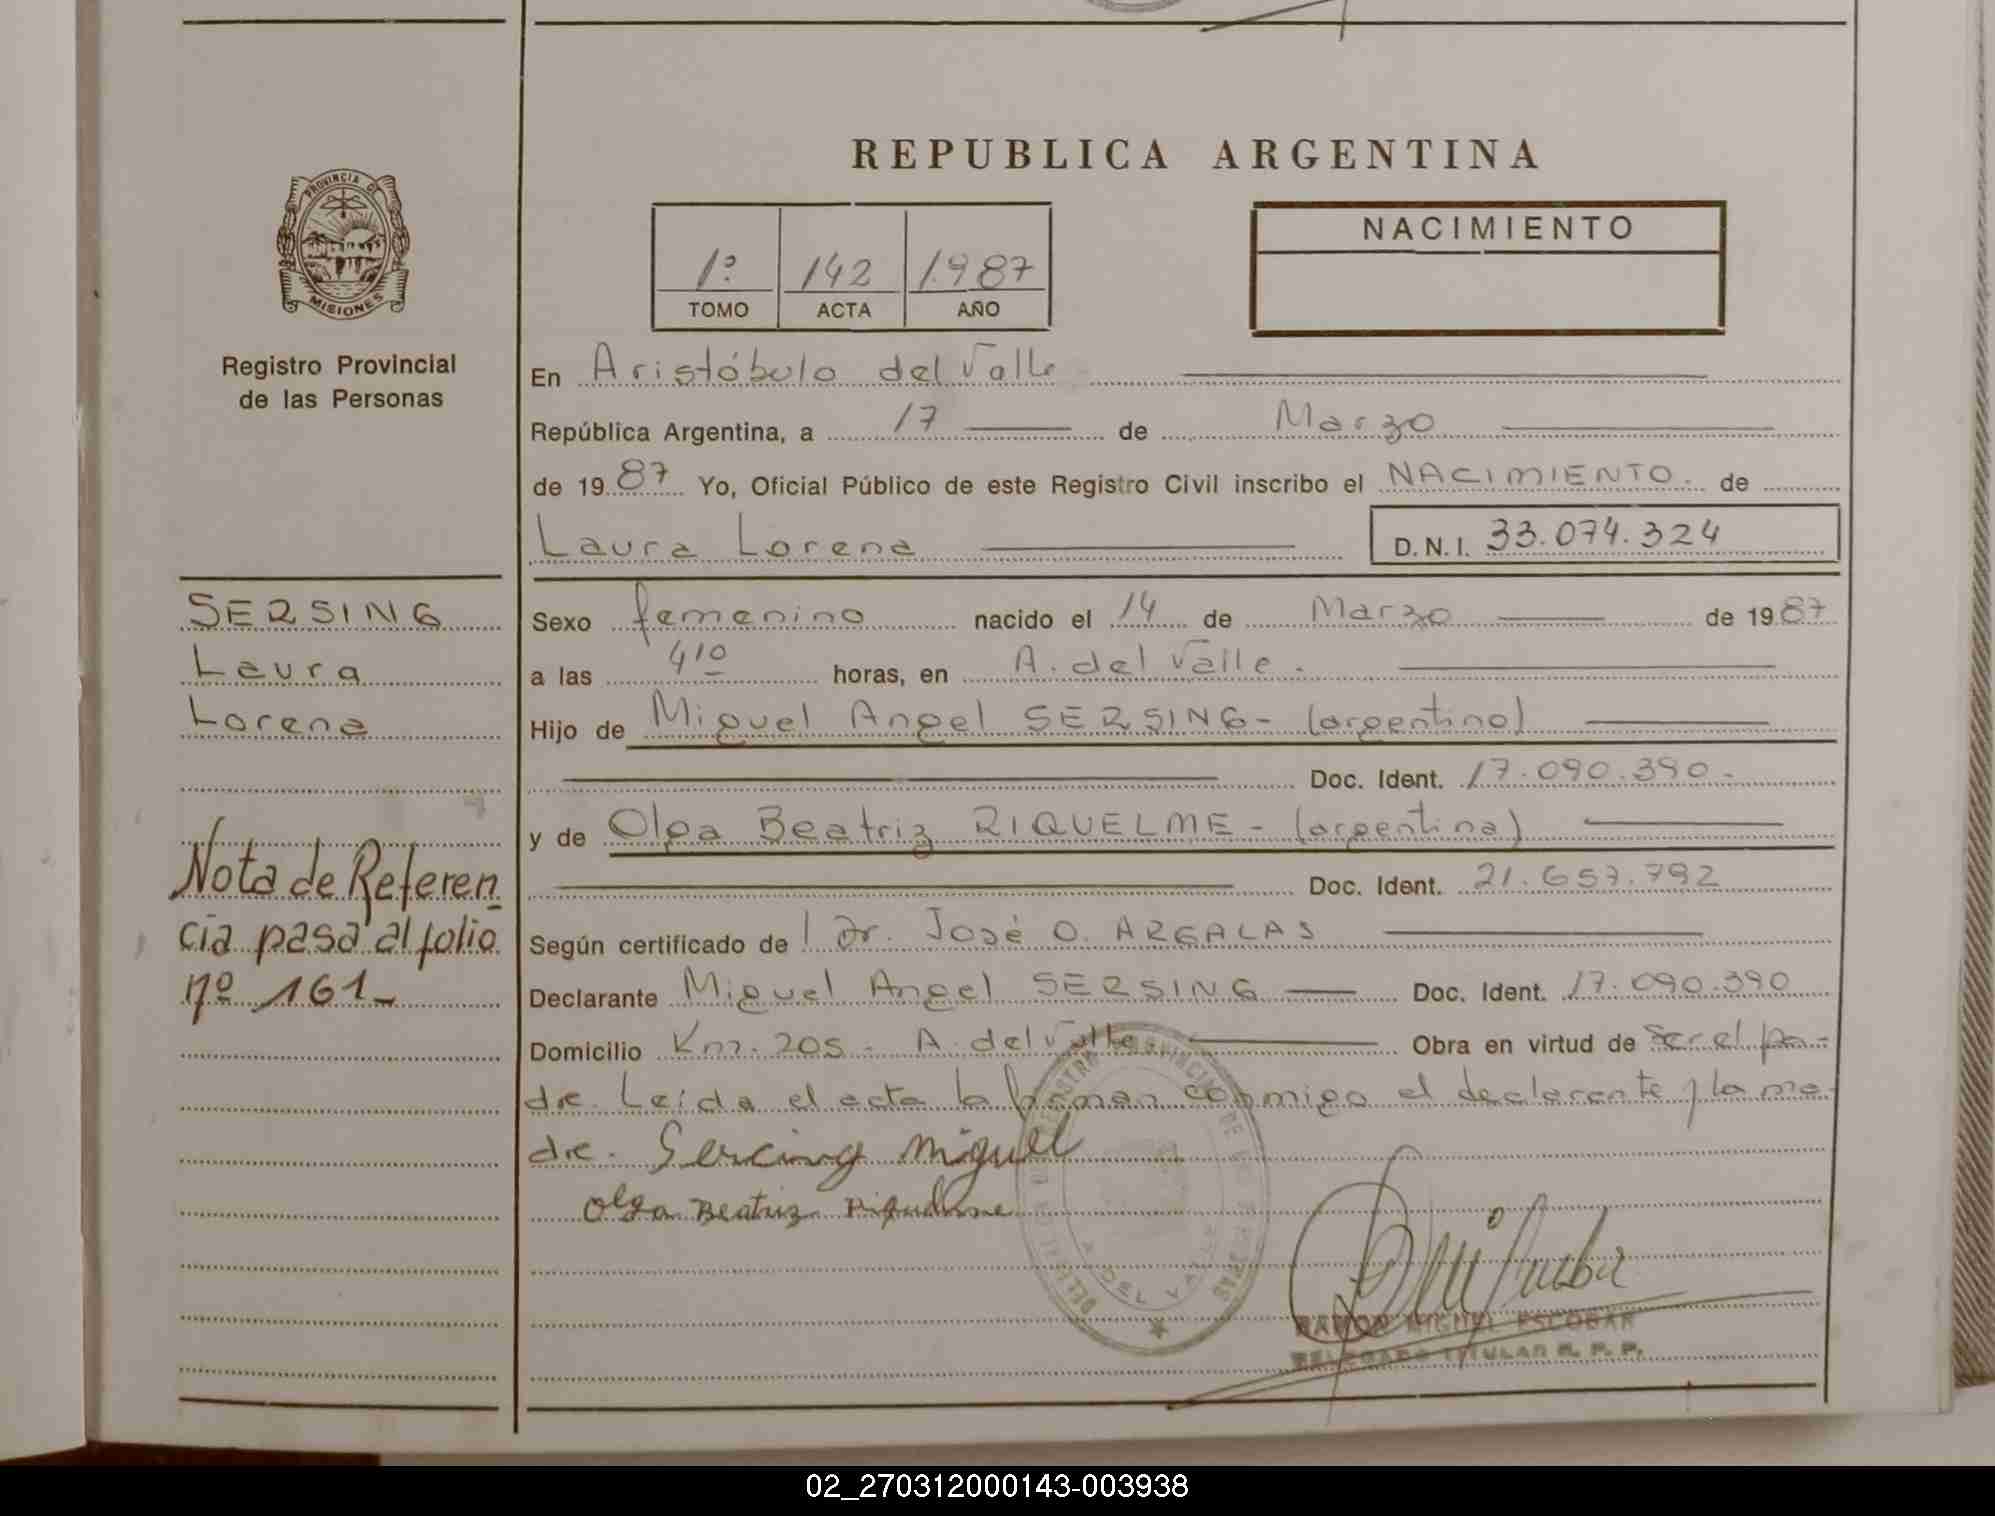 REPUBLICA ARGENTINA
PROVINCIA DE
MISIONES
Registro Provincial
de las Personas
1º 142 1.987
TOMO ACTA AÑO
NACIMIENTO
En Aristóbulo del Valle
República Argentina, a 17 de Marzo
de 1987 Yo, Oficial Público de este Registro Civil inscribo el NACIMIENTO. de
Laura Lorena D.N.I. 33.074.324
SERSING
Laura
Lorena
Nota de Referen
cia pasa al folio
nº 161-
Sexo femenino nacido el 14 de Marzo de 1987
a las 4 10 horas, en A. del Valle.
Hijo de Miguel Angel SERSING- (argentino)
Doc. Ident. 17.090.390.
y de Olga Beatriz RIQUELME- (argentina)
Doc. Ident. 21.657.792
Según certificado de Dr. José O. ARGALAS
Declarante Miguel Angel SERSING Doc. Ident. 17.090.390
Domicilio Km. 205- A. del Valle Obra en virtud de ser el pa-
dre. Leida el acta la firman conmigo el declarante y la ma-
dre. Sercing Miguel
Olga Beatriz Riquelme
A. DEL VALLE
RAMON MIGUEL ESCOBAR
DELEGADO TITULAR R. P. P.
02_270312000143-003938